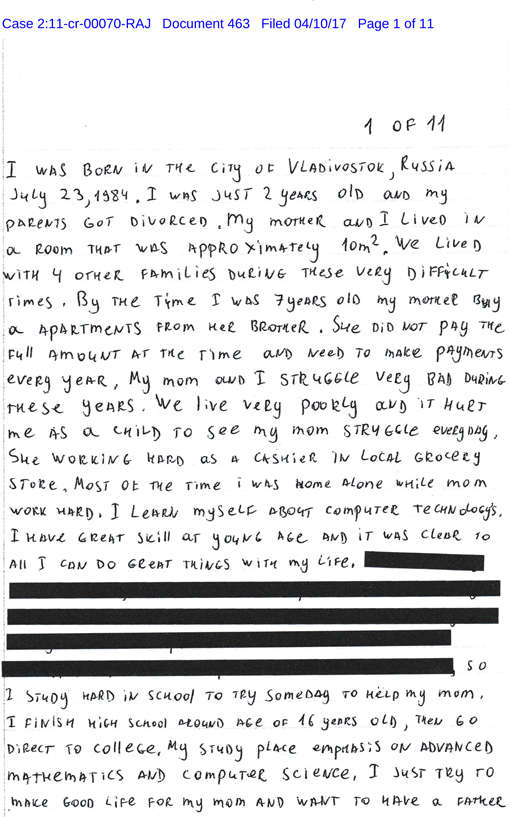 Case 2:11-cr-00070-RAJ Document 463 Filed 04/10/17 Page 1 of 11
1 OF 11
I WAS BORN IN THE CITY OF VLADIVOSTOK, RUSSIA
JULY 23, 1984. I WAS JUST 2 YEARS OLD AND MY
PARENTS GOT DIVORCED. MY MOTHER AND I LIVED IN
A ROOM THAT WAS APPROXIMATELY 10m². WE LIVED
WITH 4 OTHER FAMILIES DURING THESE VERY DIFFICULT
TIMES. BY THE TIME I WAS 7 YEARS OLD MY MOTHER BUY
A APARTMENTS FROM HER BROTHER. SHE DID NOT PAY THE
FULL AMOUNT AT THE TIME AND NEED TO MAKE PAYMENTS
EVERY YEAR, MY MOM AND I STRUGGLE VERY BAD DURING
THESE YEARS. WE LIVE VERY POORLY AND IT HURT
ME AS A CHILD TO SEE MY MOM STRUGGLE EVERYDAY,
SHE WORKING HARD AS A CASHIER IN LOCAL GROCERY
STORE. MOST OF THE TIME I WAS HOME ALONE WHILE MOM
WORK HARD. I LEARN MYSELF ABOUT COMPUTER TECHNOLOGYS.
I HAVE GREAT SKILL AT YOUNG AGE AND IT WAS CLEAR TO
ALL I CAN DO GREAT THINGS WITH MY LIFE.
, SO
I STUDY HARD IN SCHOOL TO TRY SOMEDAY TO HELP MY MOM.
I FINISH HIGH SCHOOL AROUND AGE OF 16 YEARS OLD, THEN GO
DIRECT TO COLLEGE, MY STUDY PLACE EMPHASIS ON ADVANCED
MATHEMATICS AND COMPUTER SCIENCE, I JUST TRY TO
MAKE GOOD LIFE FOR MY MOM AND WANT TO HAVE A FATHER